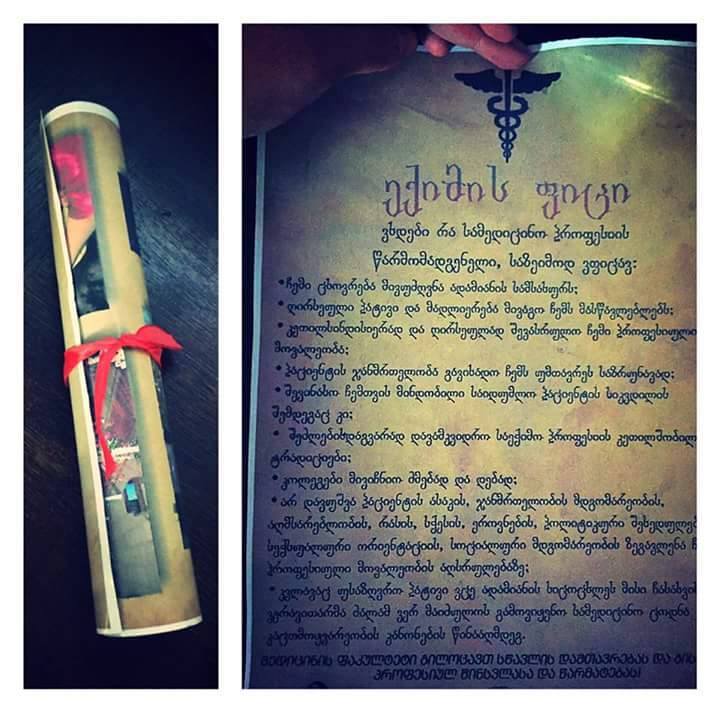 ექიმის ფიცი
ვხდები რა სამედიცინო პროფესიის
წარმომადგენელი, საზეიმოდ ვფიცავ:
•ჩემი ცხოვრება მივუძღვნა ადამიანის სამსახურს;
•ღირსეული პატივი და მადლიერება მივაგო ჩემს მასწავლებლებს;
•კეთილსინდისიერად და ღირსეულად შევასრულო ჩემი პროფესიული
მოვალეობა;
•პაციენტის ჯანმრთელობა გავიხადო ჩემს უმთავრეს საზრუნავად;
•შევინახო ჩემთვის მინდობილი საიდუმლო პაციენტის სიკვდილის
შემდეგაც კი;
• შეძლებისდაგვარად დავამკვიდრო საექიმო პროფესიის კეთილშობილ
ტრადიციები;
•კოლეგები მივიჩნიო ძმებად და დებად;
•არ დავუშვა პაციენტის ასაკის, ჯანმრთელობის მდგომარეობის,
აღმსარებლობის, რასის, სქესის, ეროვნების, პოლიტიკური შეხედულებ
სექსუალური ორიენტაციის, სოციალური მდგომარეობის ზეგავლენა ჩ
პროფესიული მოვალეობის აღსრულებაზე;
•კვლავაც უსაზღვრო პატივი ვცე ადამიანის სიცოცხლეს მისი ჩასახვის
ვერავითარმა ძალამ ვერ მაიძულოს გამოვიყენო სამედიცინო ცოდნა
კაცთმოყვარეობის კანონების წინააღმდეგ.
მედიცინის ფაკულტეტი გილოცავთ სწავლის დამთავრებას და გის
პროფესიულ წინსვლასა და წარმატებას!